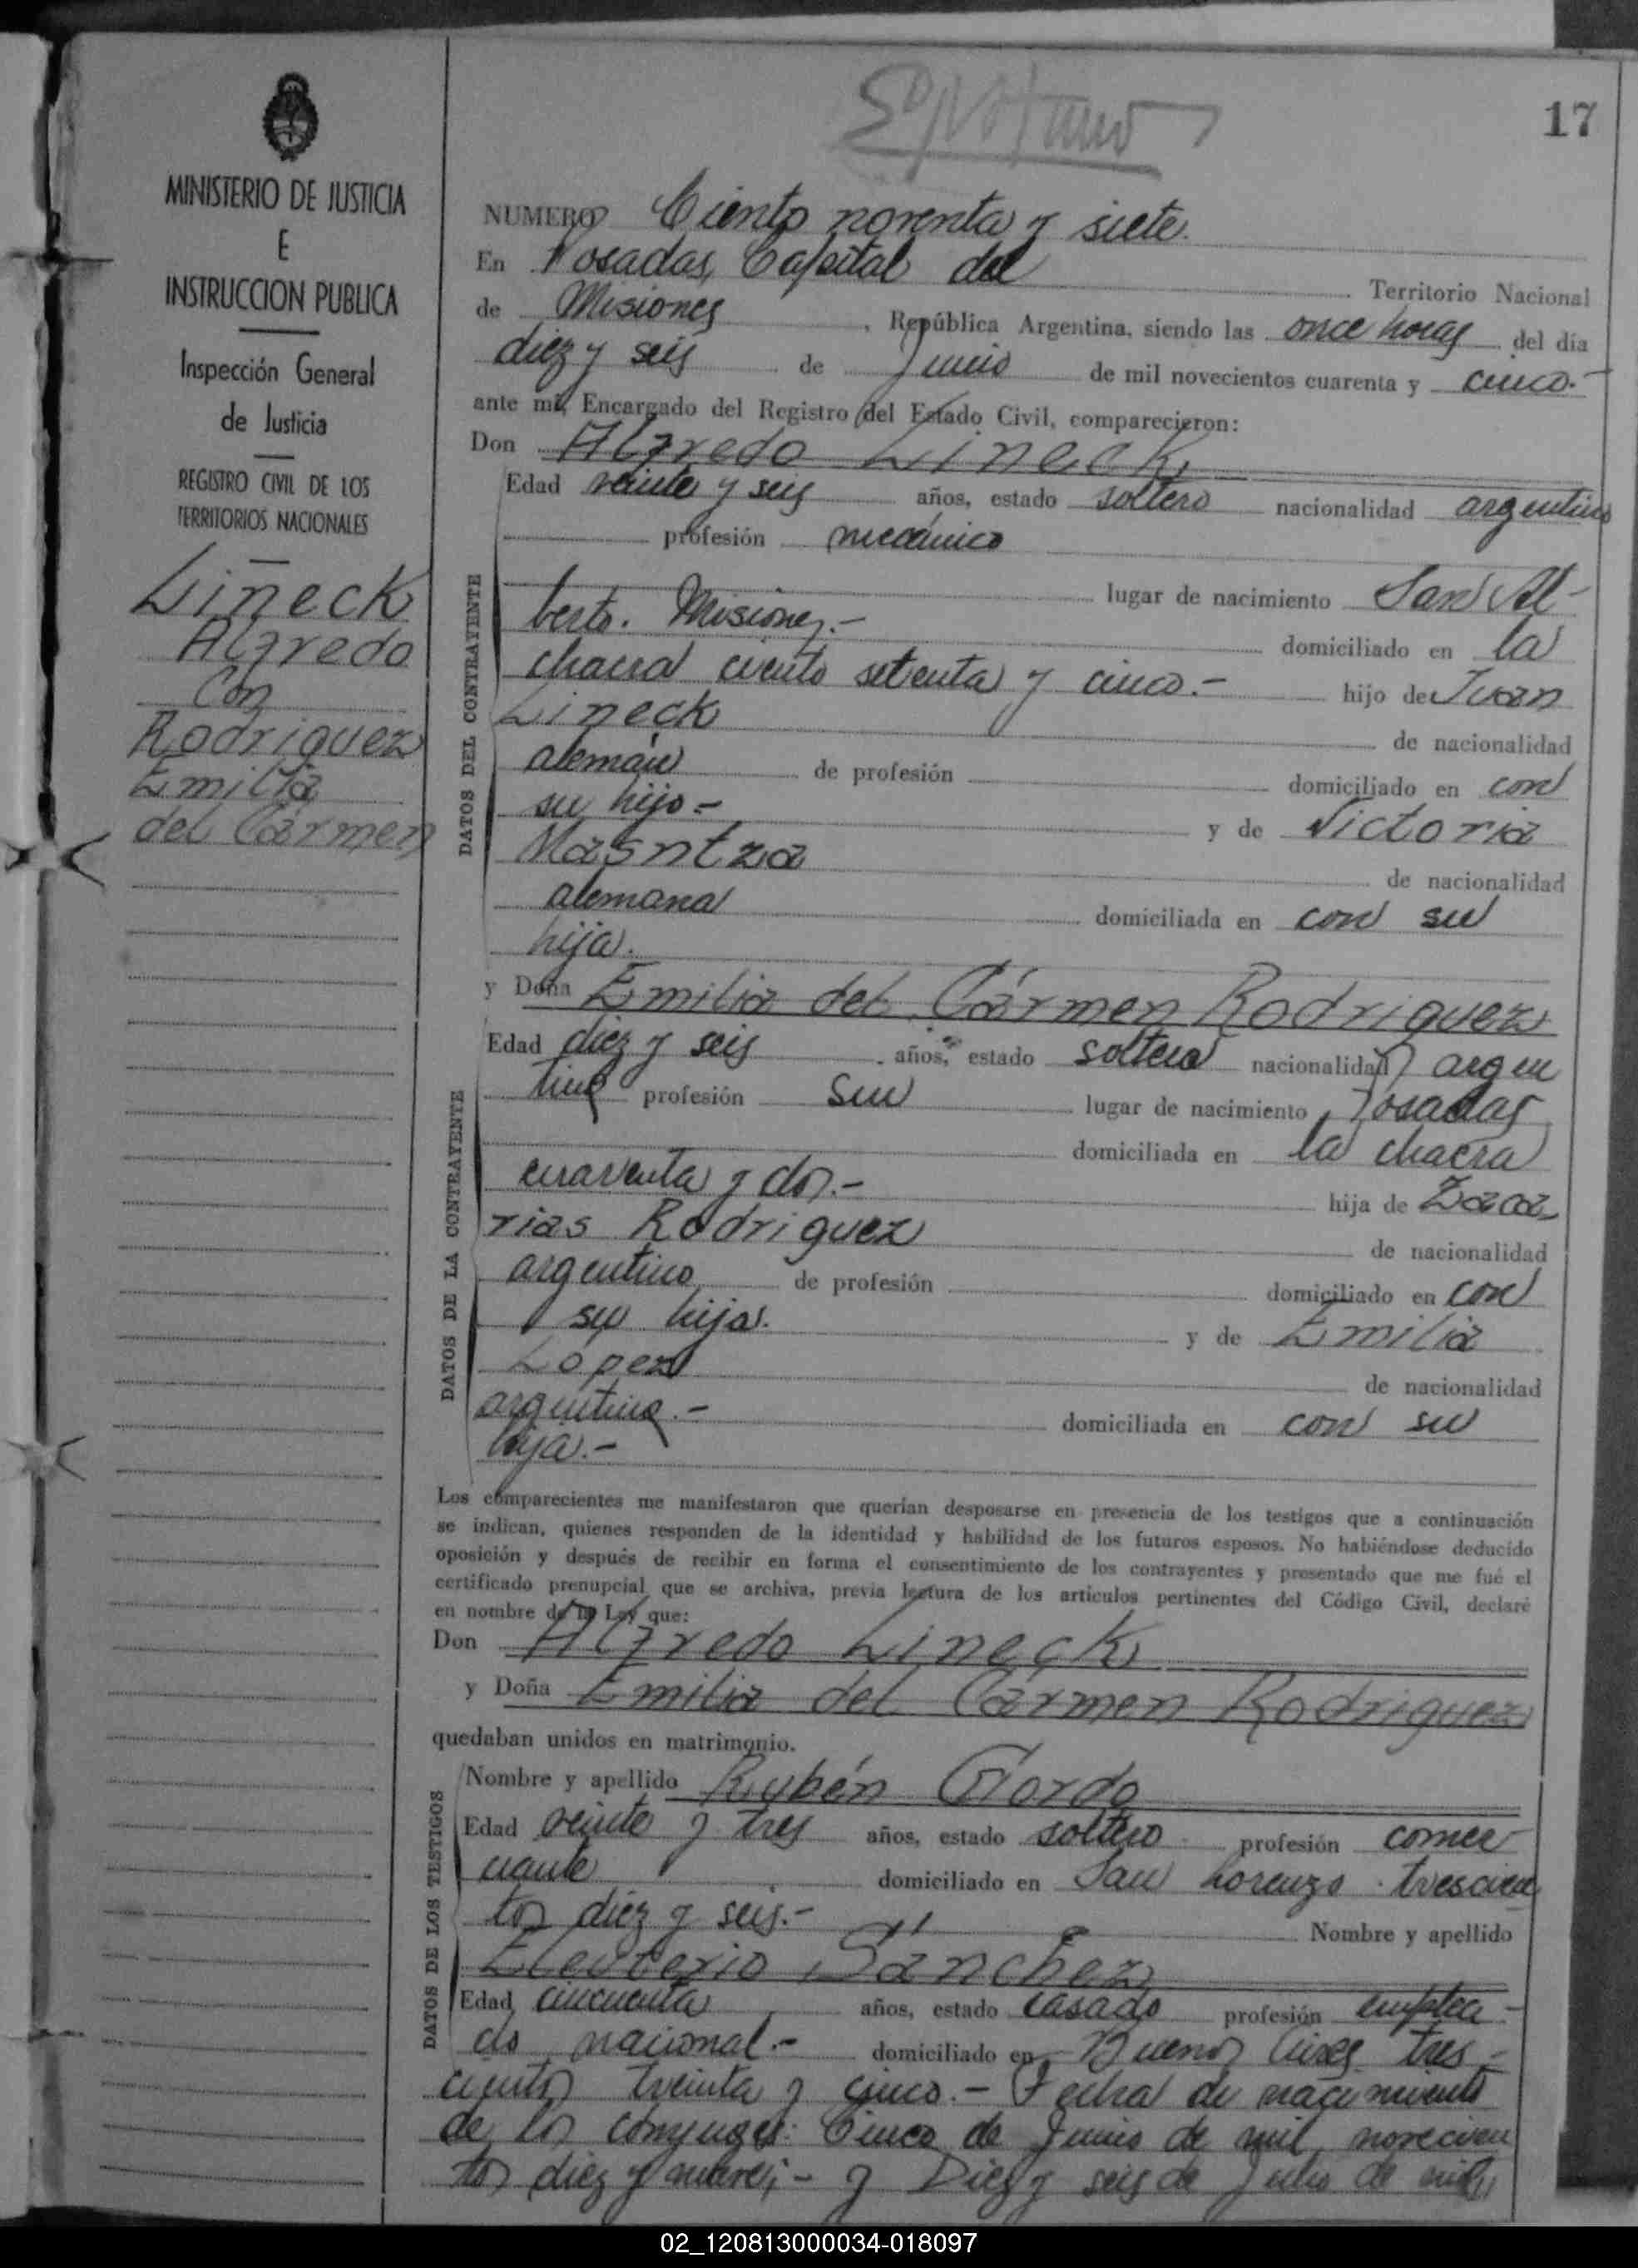 17
MINISTERIO DE JUSTICIA
E
INSTRUCCION PUBLICA
Inspección General
de Justicia
REGISTRO CIVIL DE LOS
TERRITORIOS NACIONALES
Liñeck
Alfredo
con
Rodriguez
Emilia
del Cármen
NUMERO Ciento noventa y siete.
En Posadas, Capital del Territorio Nacional
de Misiones, República Argentina, siendo las once horas del día
diez y seis de Junio de mil novecientos cuarenta y cinco.-
ante mí, Encargado del Registro del Estado Civil, comparecieron:
Don Alfredo Lineck
Edad veinte y seis años, estado soltero nacionalidad argentino
profesión mecánico
DATOS DEL CONTRAYENTE
lugar de nacimiento San Al-
berto. Misiones.- domiciliado en la
chacra ciento setenta y cinco.- hijo de Juan
Lineck de nacionalidad
alemán de profesión domiciliado en con
su hijo - y de Victoria
Masntza de nacionalidad
alemana domiciliada en con su
hija.
y Doña Emilia del Cármen Rodriguez
Edad diez y seis años, estado soltera nacionalidad argen
tina profesión sin lugar de nacimiento Posadas
DATOS DE LA CONTRAYENTE
domiciliada en la chacra
cuarenta y dos.- hija de Zaca-
rias Rodriguez de nacionalidad
argentino de profesión domiciliado en con
su hija. y de Emilia
López de nacionalidad
argentina.- domiciliada en con su
hija.-
Los comparecientes me manifestaron que querían desposarse en presencia de los testigos que a continuación
se indican, quienes responden de la identidad y habilidad de los futuros esposos. No habiéndose deducido
oposición y después de recibir en forma el consentimiento de los contrayentes y presentado que me fué el
certificado prenupcial que se archiva, previa lectura de los artículos pertinentes del Código Civil, declaré
en nombre de la Ley que:
Don Alfredo Lineck
y Doña Emilia del Cármen Rodriguez
quedaban unidos en matrimonio.
DATOS DE LOS TESTIGOS
Nombre y apellido Rubén Gordo
Edad veinte y tres años, estado soltero profesión comer-
ciante domiciliado en San Lorenzo trescien
tos diez y seis.- Nombre y apellido
Eleuterio Sánchez
Edad cincuenta años, estado casado profesión emplea-
do nacional.- domiciliado en Buenos Aires tres-
cientos treinta y cinco.- Fecha de nacimiento
de los conyuges: Cinco de Junio de mil novecien
tos diez y nueve;- y Diez y seis de Julio de mil
02_120813000034-018097